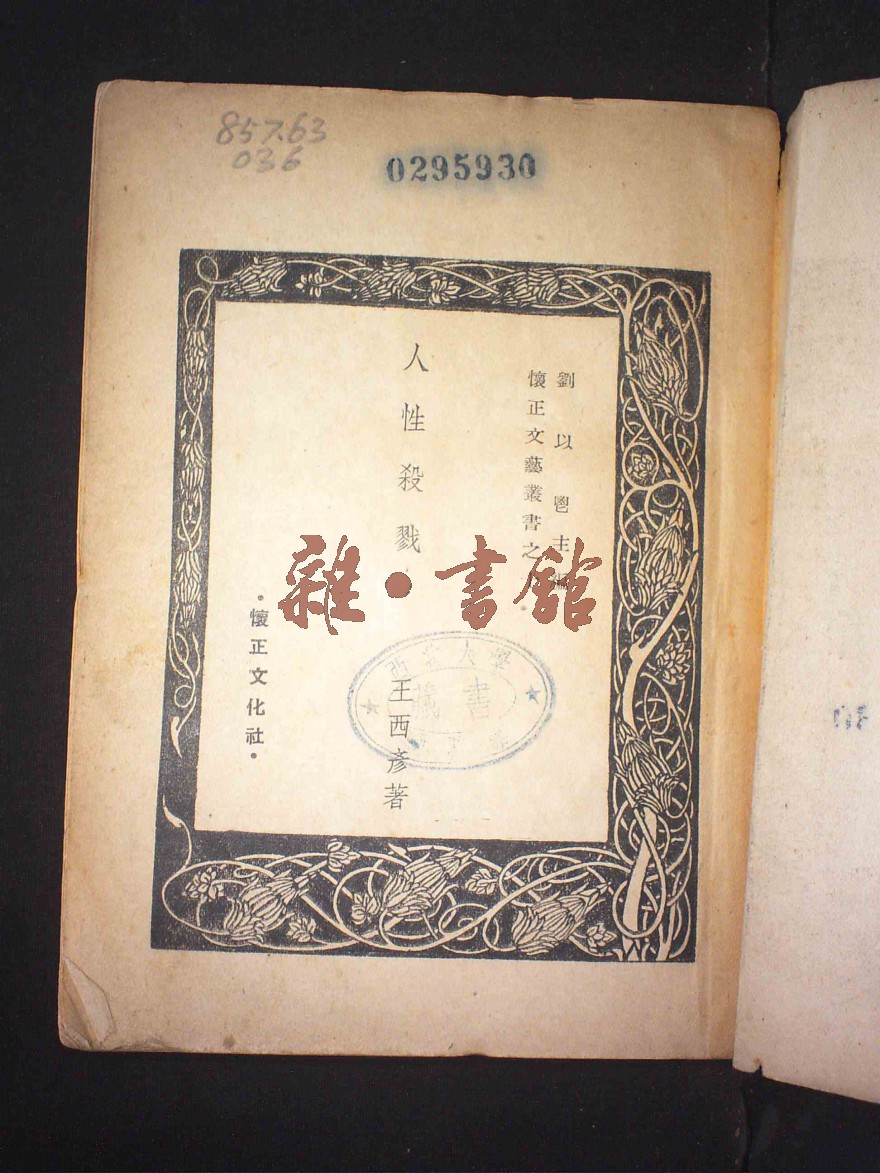 857.63
036
0295930
劉以鬯主編
懷正文藝叢書之
人性殺戮
王西彥著
·懷正文化社·
雜·書館
大學
藏書